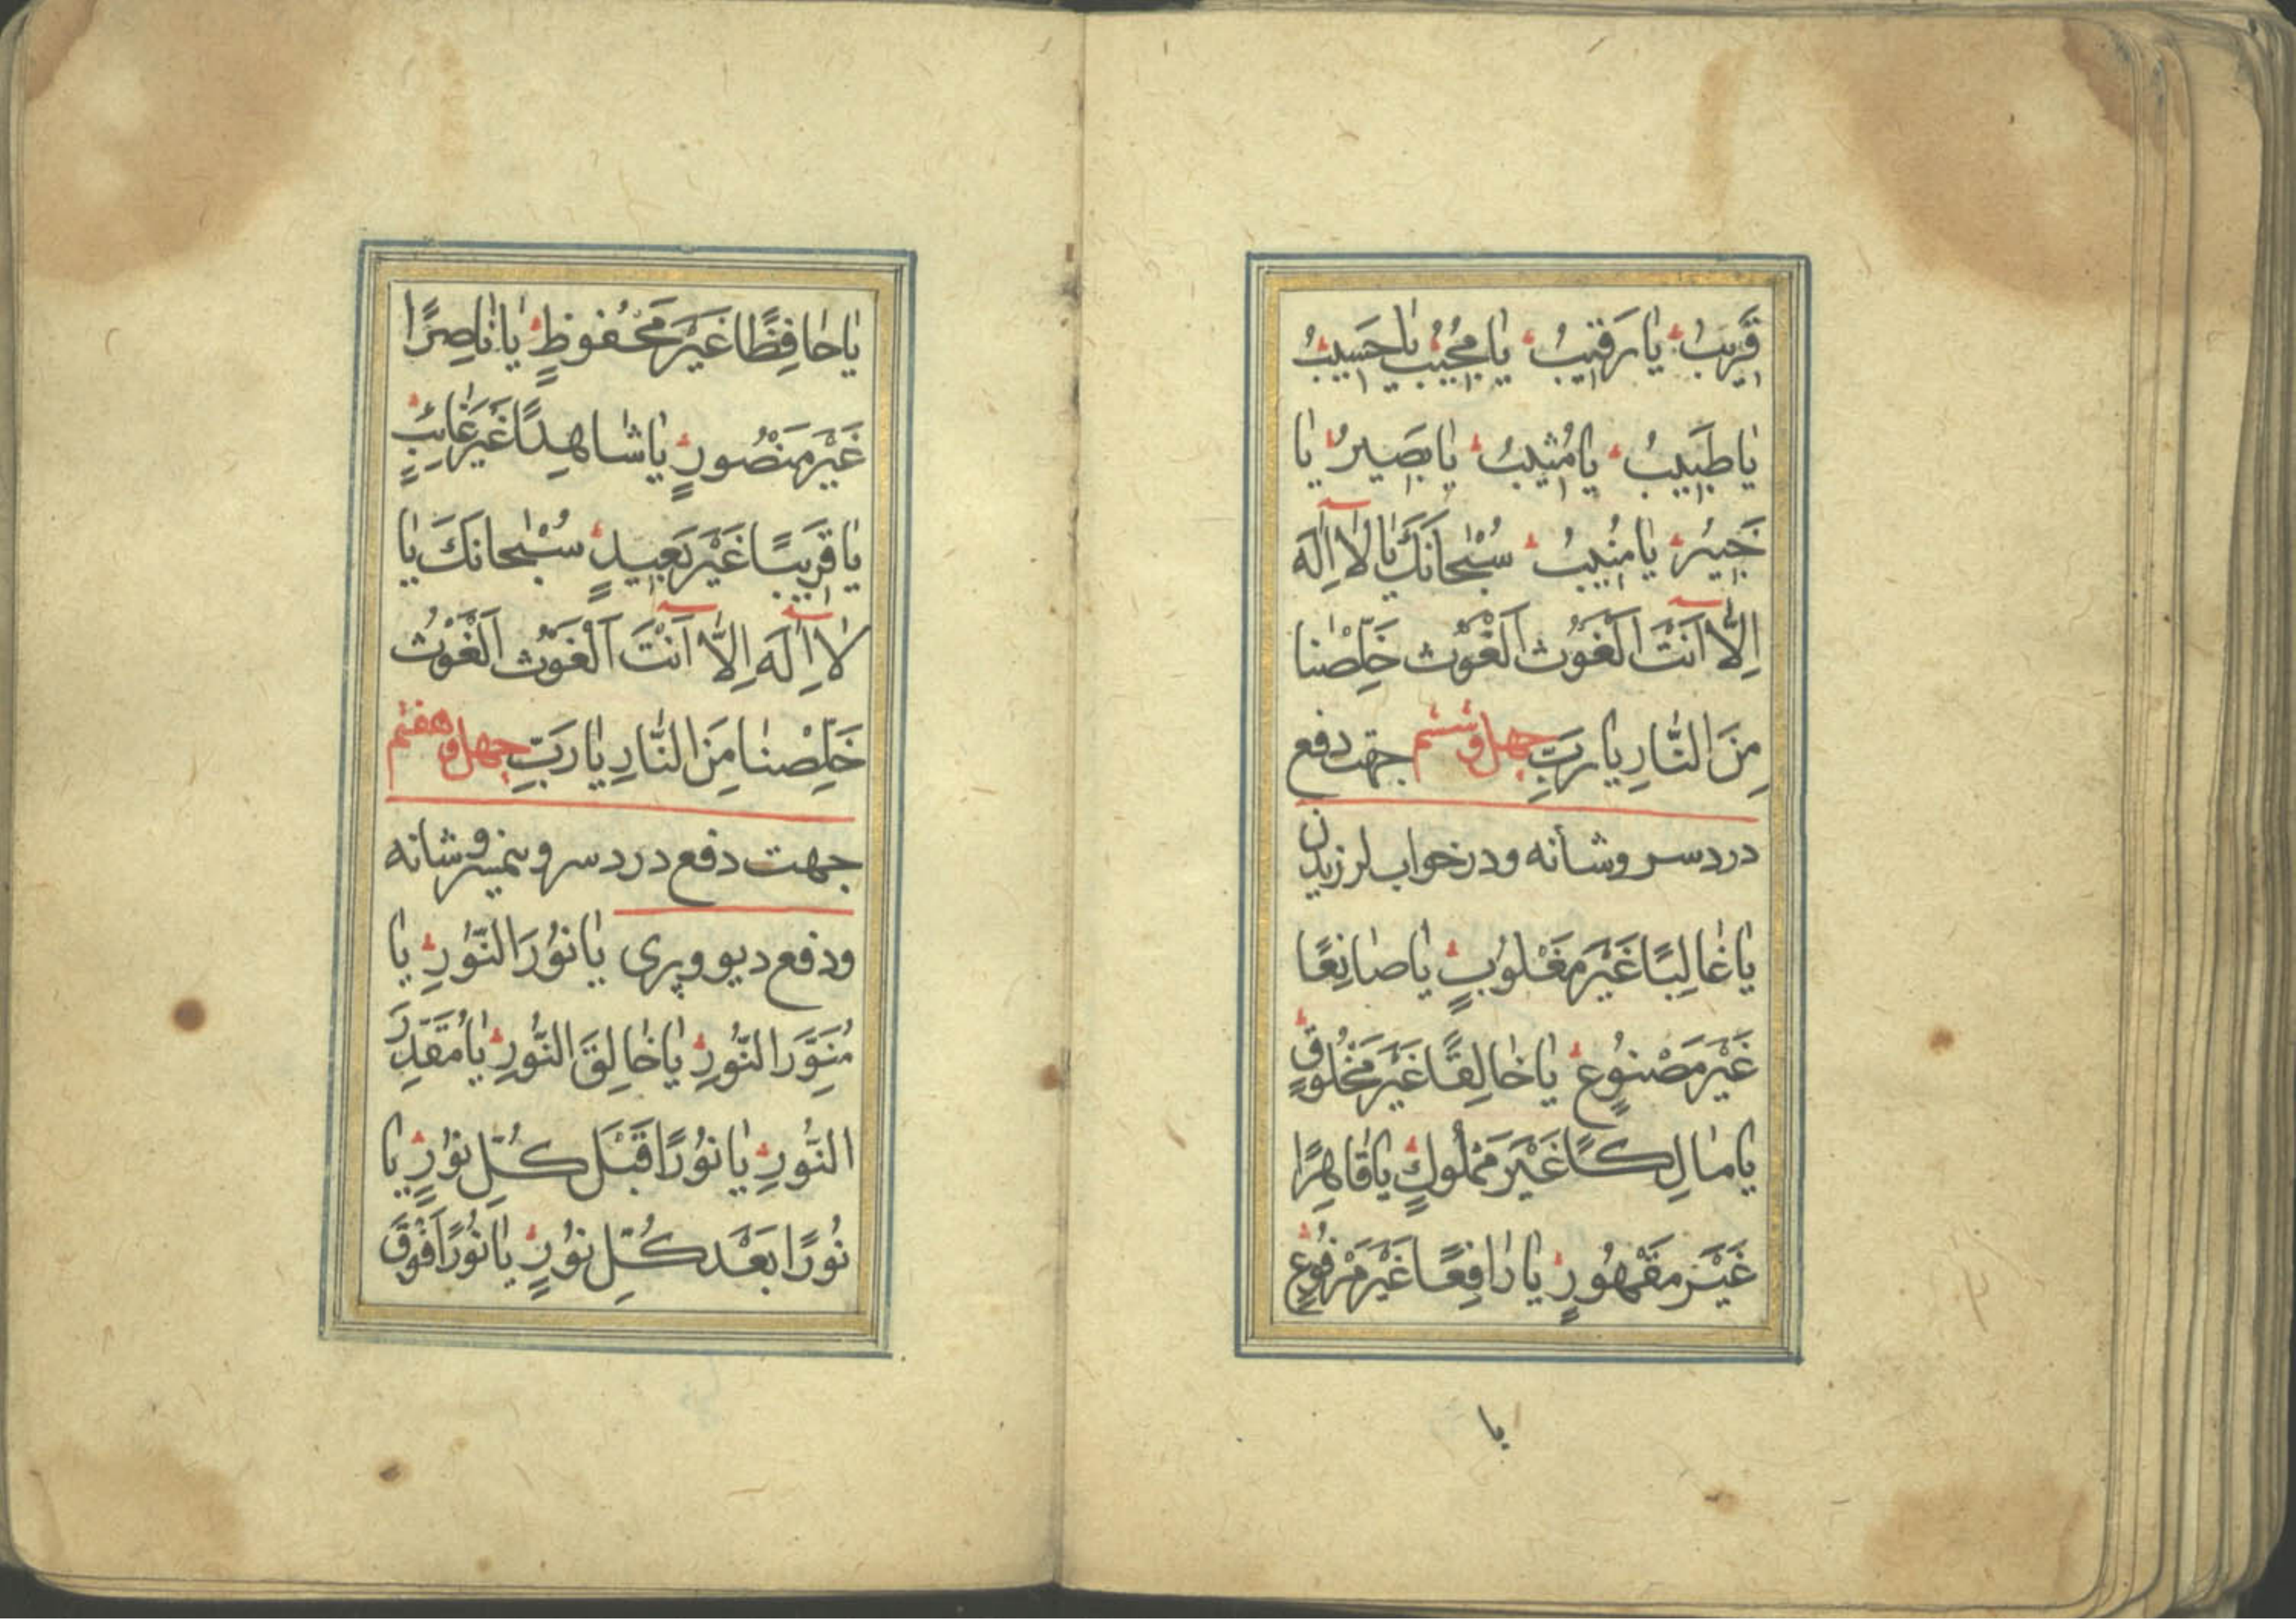 قَرِيبُ يا رَقيبُ يا مُجيبُ يا حَسيبُ
يا طَبيبُ يا مُثيبُ يا بَصيرُ يا
خَبيرُ يا مُنيبُ سُبْحانَكَ يا لا اِلهَ
اِلّا اَنْتَ الْغَوْث الْغَوْث خَلِّصْنا
مِنَ النّارِ يا رَبِّ چهل و ششم جهت دفع
درد سر و شانه و در خواب لرزیدن
يا غالِبًا غَيْرَ مَغْلوُبٍ يا صانِعًا
غَيْرَ مَصْنوُعٍ يا خالِقًا غَيْرَ مَخْلوُقٍ
يا مالِكًا غَيْرَ مَمْلُوكٍ يا قاهِرًا
غَيْرَ مَقْهُورٍ يا رافِعًا غَيْرَ مَرْفوُعٍ
يا
يا حافِظًا غَيْرَ مَحْفوظٍ يا ناصِرًا
غَيْرَ مَنْصُورٍ يا شاهِدًا غَيْرَ غائِبٍ
يا قَرِيبًا غَيْرَ بَعيدٍ سُبْحانَكَ يا
لا اِلهَ اِلّا اَنْتَ اَلْغَوْث اَلْغَوْث
خَلِّصْنا مِنَ النّارِ يا رَبِّ چهل و هفتم
جهت دفع درد سر و نیم سر و شانه
و دفع دیو و پری يا نوُرَ النّوُرِ يا
مُنَوِّرَ النُّورِ يا خالِقَ النُّورِ يا مُقَدِّرَ
النُّورِ يا نوُرًا قَبْلَ كُلِّ نوُرٍ يا
نُورًا بَعْدَ كُلِّ نوُرٍ يا نوُرًا فَوْقَ